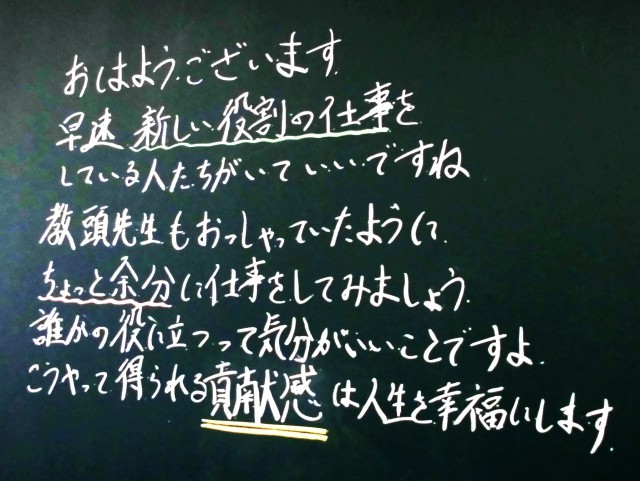 おはようございます.
早速 新しい役割の仕事を
している人たちがいていいですね
教頭先生もおっしゃっていたように
ちょっと余分に仕事をしてみましょう.
誰かの役に立つって気分がいいことですよ.
こうやって得られる貢献感は人生を幸福にします.